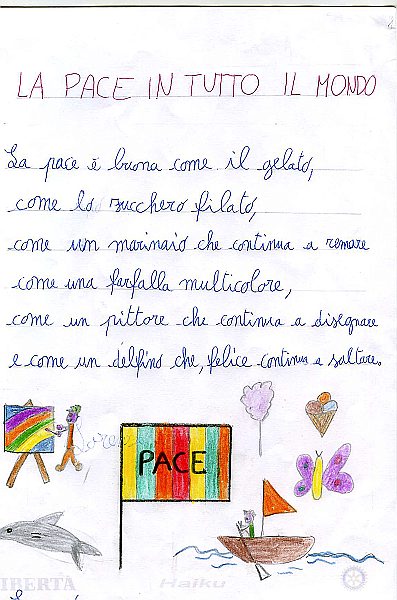 LA PACE IN TUTTO IL MONDO
La pace è buona come il gelato,
come lo zucchero filato,
come un marinaio che continua a remare
come una farfalla multicolore,
come un pittore che continua a disegnare
e come un delfino che, felice continua a saltare.
PACE
IBERTA
Haiku